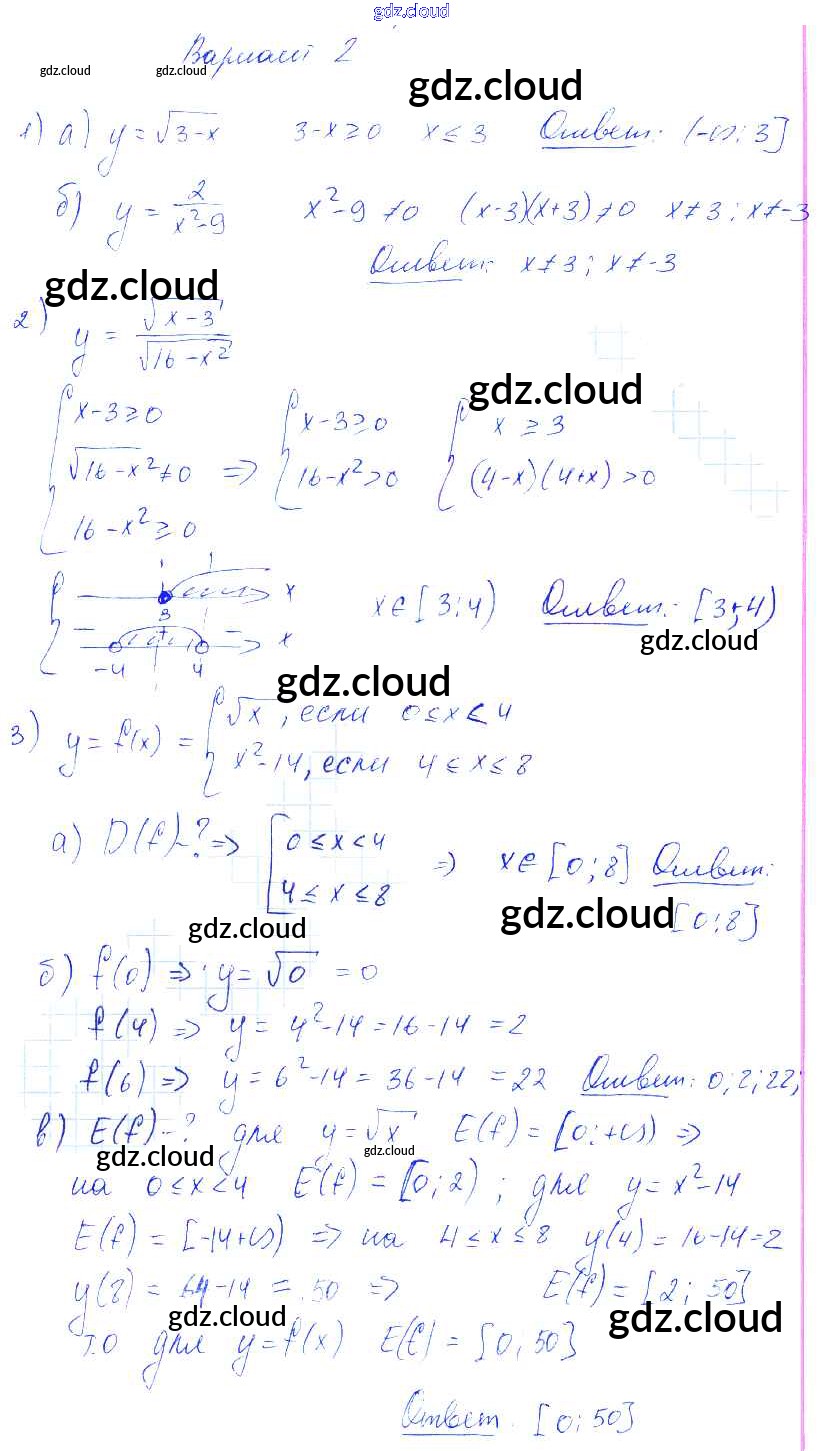 gdz.cloud
Вариант 2
gdz.cloud gdz.cloud gdz.cloud
1) а) y = √3-x 3-x ≥ 0 x ≤ 3 Ответ: (-∞; 3]
б) y = 2/(x²-9) x²-9 ≠ 0 (x-3)(x+3) ≠ 0 x ≠ 3; x ≠ -3
Ответ: x ≠ 3; x ≠ -3
gdz.cloud
2) y = √x-3 / √16-x²
gdz.cloud
{ x-3 ≥ 0 { x-3 ≥ 0 { x ≥ 3
√16-x² ≠ 0 => 16-x² > 0 (4-x)(4+x) > 0
16-x² ≥ 0
3 x
x∈[3;4) Ответ: [3;4)
gdz.cloud
- + - x
-4 4
gdz.cloud
3) y = f(x) = { √x, если 0 ≤ x < 4
x²-14, если 4 ≤ x ≤ 8
а) D(f)-? => [ 0 ≤ x < 4
4 ≤ x ≤ 8 => x∈[0;8] Ответ:
gdz.cloud gdz.cloud [0;8]
б) f(0) => y = √0 = 0
f(4) => y = 4²-14 = 16-14 = 2
f(6) => y = 6²-14 = 36-14 = 22 Ответ: 0; 2; 22;
в) E(f)-? для y = √x E(f) = [0;+∞) =>
gdz.cloud gdz.cloud
на 0 ≤ x < 4 E(f) = [0;2) ; для y = x²-14
E(f) = [-14+∞) => на 4 ≤ x ≤ 8 y(4) = 16-14=2
y(8) = 64-14 = 50 => E(f) = [2; 50]
gdz.cloud gdz.cloud
т.о для y = f(x) E(f) = [0; 50]
Ответ. [0; 50]